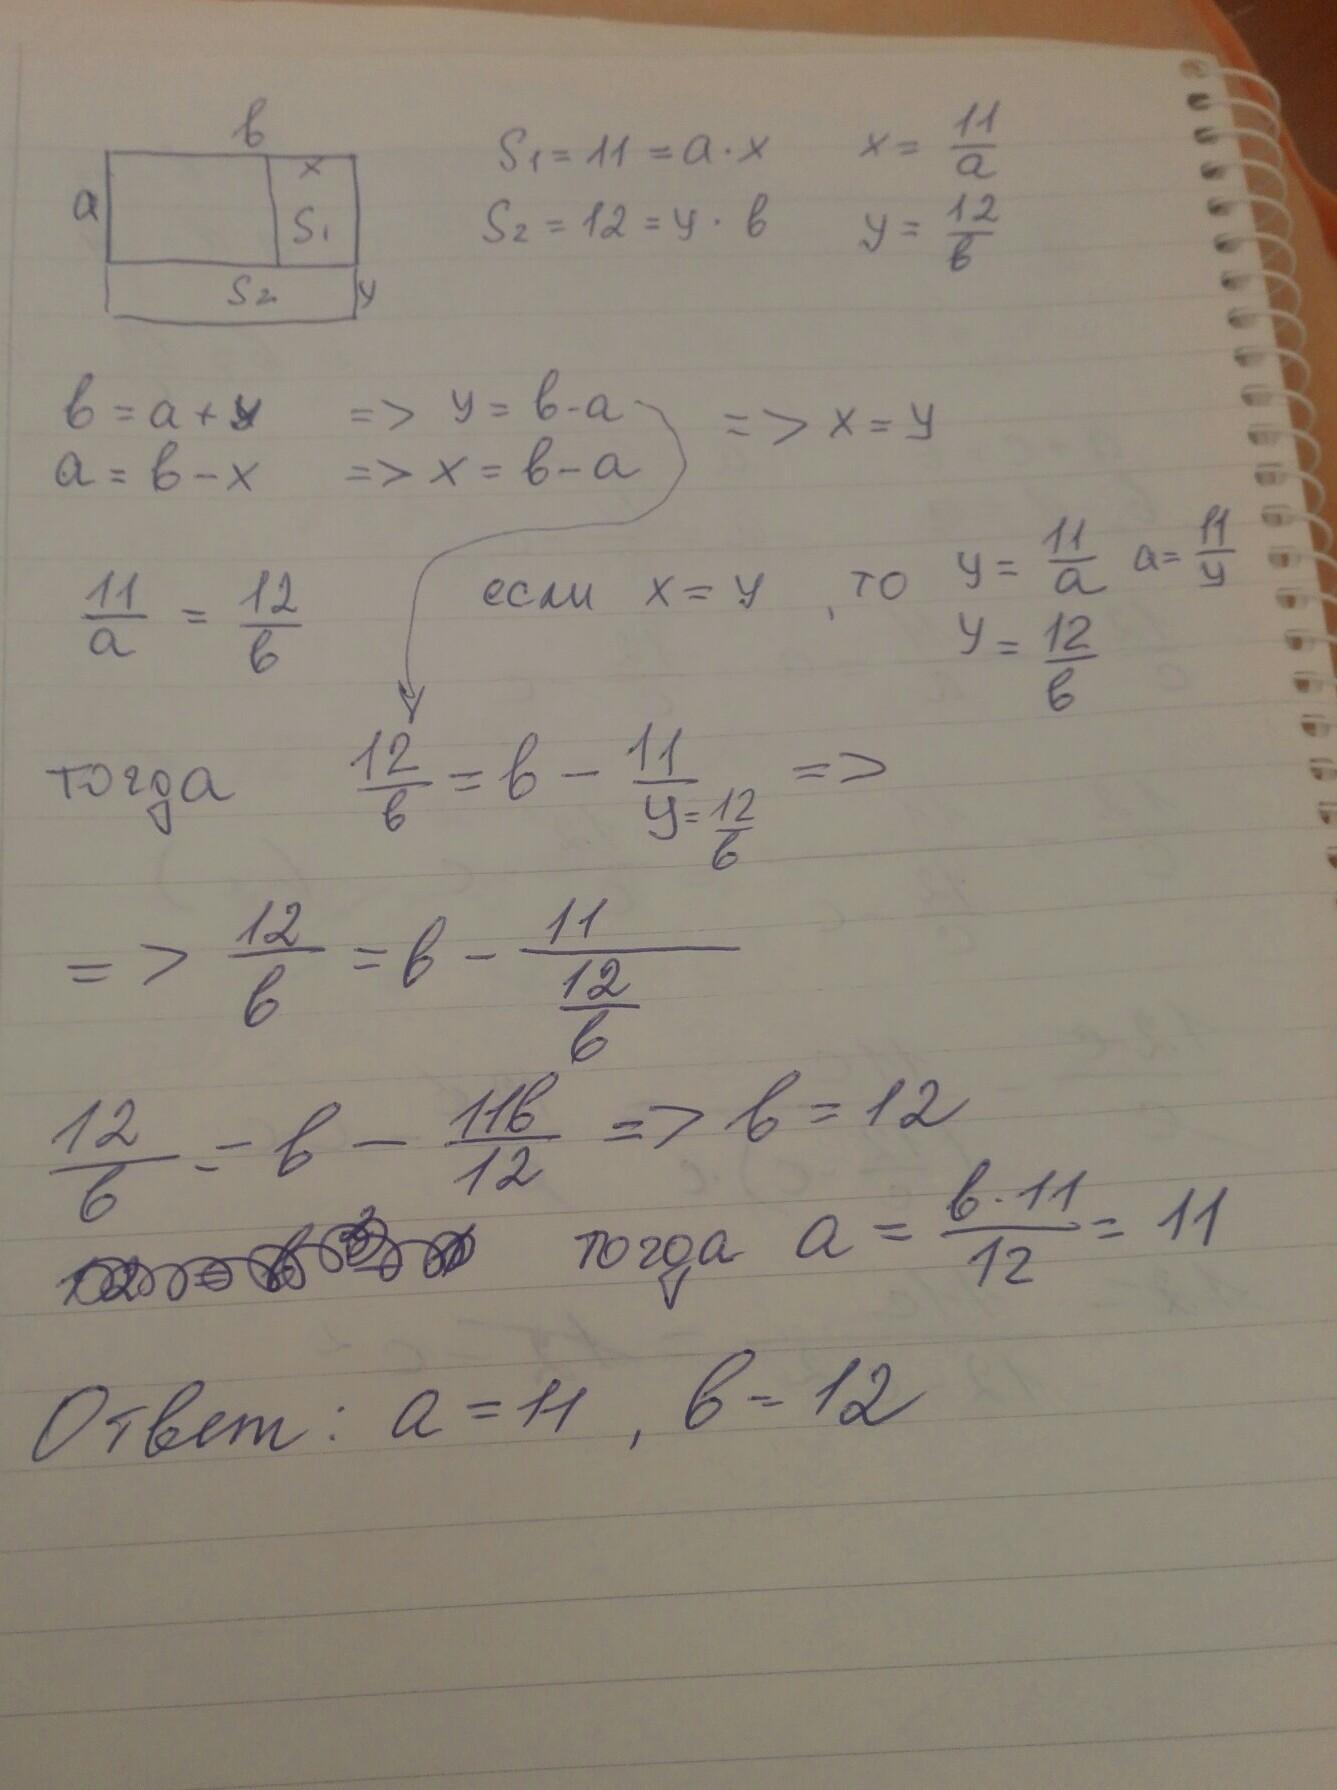 в
a
x
S₁
S₂ y
S₁ = 11 = a · x x = 11/a
S₂ = 12 = y · в y = 12/в
в = a + y => y = в - a => x = y
a = в - x => x = в - a
11/a = 12/в если x = y , то y = 11/a a = 11/y
y = 12/в
тогда 12/в = в - 11/y = 12/в =>
=> 12/в = в - 11/(12/в)
12/в = в - 11в/12 => в = 12
тогда a = в · 11/12 = 11
Ответ: a = 11 , в = 12